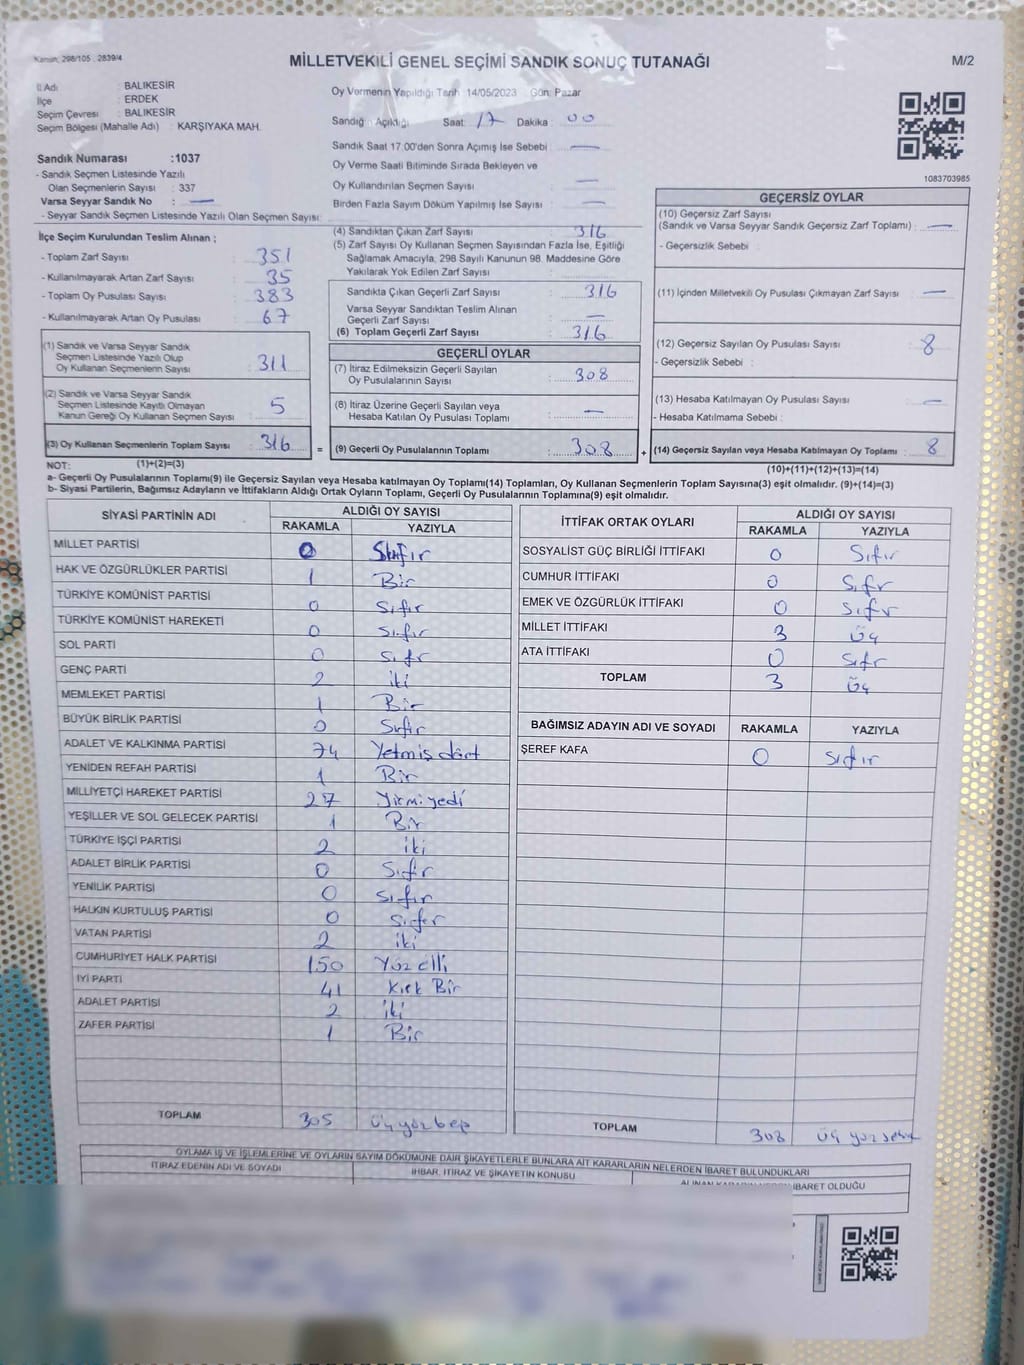 Kanun: 298/105 , 2839/4
MİLLETVEKİLİ GENEL SEÇİMİ SANDIK SONUÇ TUTANAĞI
M/2
İl Adı : BALIKESİR
İlçe : ERDEK
Seçim Çevresi : BALIKESİR
Seçim Bölgesi (Mahalle Adı) : KARŞIYAKA MAH.
Sandık Numarası :1037
- Sandık Seçmen Listesinde Yazılı
Olan Seçmenlerin Sayısı : 337
Varsa Seyyar Sandık No : —
- Seyyar Sandık Seçmen Listesinde Yazılı Olan Seçmen Sayısı:
Oy Vermenin Yapıldığı Tarih :14/05/2023 Gün: Pazar
Sandığın Açıldığı Saat: 17 Dakika : 00
Sandık Saat 17:00'den Sonra Açımış İse Sebebi : —
Oy Verme Saati Bitiminde Sırada Bekleyen ve
Oy Kullandırılan Seçmen Sayısı : —
Birden Fazla Sayım Döküm Yapılmış İse Sayısı : —
1083703985
İlçe Seçim Kurulundan Teslim Alınan ;
- Toplam Zarf Sayısı : 351
- Kullanılmayarak Artan Zarf Sayısı : 35
- Toplam Oy Pusulası Sayısı : 383
- Kullanılmayarak Artan Oy Pusulası : 67
(1) Sandık ve Varsa Seyyar Sandık
Seçmen Listesinde Yazılı Olup
Oy Kullanan Seçmenlerin Sayısı : 311
(2) Sandık ve Varsa Seyyar Sandık
Seçmen Listesinde Kayıtlı Olmayan
Kanun Gereği Oy Kullanan Seçmen Sayısı : 5
(3) Oy Kullanan Seçmenlerin Toplam Sayısı : 316
(4) Sandıktan Çıkan Zarf Sayısı : 316
(5) Zarf Sayısı Oy Kullanan Seçmen Sayısından Fazla İse, Eşitliği
Sağlamak Amacıyla, 298 Sayılı Kanunun 98. Maddesine Göre
Yakılarak Yok Edilen Zarf Sayısı :
Sandıkta Çıkan Geçerli Zarf Sayısı : 316
Varsa Seyyar Sandıktan Teslim Alınan
Geçerli Zarf Sayısı : —
(6) Toplam Geçerli Zarf Sayısı : 316
GEÇERLİ OYLAR
(7) İtiraz Edilmeksizin Geçerli Sayılan
Oy Pusulalarının Sayısı : 308
(8) İtiraz Üzerine Geçerli Sayılan veya
Hesaba Katılan Oy Pusulası Toplamı : —
= (9) Geçerli Oy Pusulalarının Toplamı : 308 +
GEÇERSİZ OYLAR
(10) Geçersiz Zarf Sayısı
(Sandık ve Varsa Seyyar Sandık Geçersiz Zarf Toplamı) : —
- Geçersizlik Sebebi :
(11) İçinden Milletvekili Oy Pusulası Çıkmayan Zarf Sayısı : —
(12) Geçersiz Sayılan Oy Pusulası Sayısı : 8
- Geçersizlik Sebebi :
(13) Hesaba Katılmayan Oy Pusulası Sayısı : —
- Hesaba Katılmama Sebebi :
(14) Geçersiz Sayılan veya Hesaba Katılmayan Oy Toplamı : 8
NOT: (1)+(2)=(3)
(10)+(11)+(12)+(13)=(14)
a- Geçerli Oy Pusulalarının Toplamı(9) ile Geçersiz Sayılan veya Hesaba katılmayan Oy Toplamı(14) Toplamları, Oy Kullanan Seçmenlerin Toplam Sayısına(3) eşit olmalıdır. (9)+(14)=(3)
b- Siyasi Partilerin, Bağımsız Adayların ve İttifakların Aldığı Ortak Oyların Toplamı, Geçerli Oy Pusulalarının Toplamına(9) eşit olmalıdır.
SİYASİ PARTİNİN ADI ALDIĞI OY SAYISI
RAKAMLA YAZIYLA
MİLLET PARTİSİ 0 Sıfır
HAK VE ÖZGÜRLÜKLER PARTİSİ 1 Bir
TÜRKİYE KOMÜNİST PARTİSİ 0 Sıfır
TÜRKİYE KOMÜNİST HAREKETİ 0 Sıfır
SOL PARTİ 0 Sıfr
GENÇ PARTİ 2 iki
MEMLEKET PARTİSİ 1 Bir
BÜYÜK BİRLİK PARTİSİ 0 Sıfır
ADALET VE KALKINMA PARTİSİ 74 Yetmiş dört
YENİDEN REFAH PARTİSİ 1 Bir
MİLLİYETÇİ HAREKET PARTİSİ 27 Yirmiyedi
YEŞİLLER VE SOL GELECEK PARTİSİ 1 Bir
TÜRKİYE İŞÇİ PARTİSİ 2 iki
ADALET BİRLİK PARTİSİ 0 Sıfır
YENİLİK PARTİSİ 0 Sıfır
HALKIN KURTULUŞ PARTİSİ 0 Sıfır
VATAN PARTİSİ 2 iki
CUMHURİYET HALK PARTİSİ 150 Yüz elli
İYİ PARTİ 41 Kırk Bir
ADALET PARTİSİ 2 iki
ZAFER PARTİSİ 1 Bir
TOPLAM 305 Üç yüz beş
İTTİFAK ORTAK OYLARI ALDIĞI OY SAYISI
RAKAMLA YAZIYLA
SOSYALİST GÜÇ BİRLİĞİ İTTİFAKI 0 Sıfır
CUMHUR İTTİFAKI 0 Sıfr
EMEK VE ÖZGÜRLÜK İTTİFAKI 0 Sıfır
MİLLET İTTİFAKI 3 Üç
ATA İTTİFAKI 0 Sıfr
TOPLAM 3 Üç
BAĞIMSIZ ADAYIN ADI VE SOYADI RAKAMLA YAZIYLA
ŞEREF KAFA 0 Sıfır
TOPLAM 308 Üç yüz sekiz
OYLAMA İŞ VE İŞLEMLERİNE VE OYLARIN SAYIM DÖKÜMÜNE DAİR ŞİKAYETLERLE BUNLARA AİT KARARLARIN NELERDEN İBARET BULUNDUKLARI
İTİRAZ EDENİN ADI VE SOYADI İHBAR, İTİRAZ VE ŞİKAYETİN KONUSU İBARET OLDUĞU